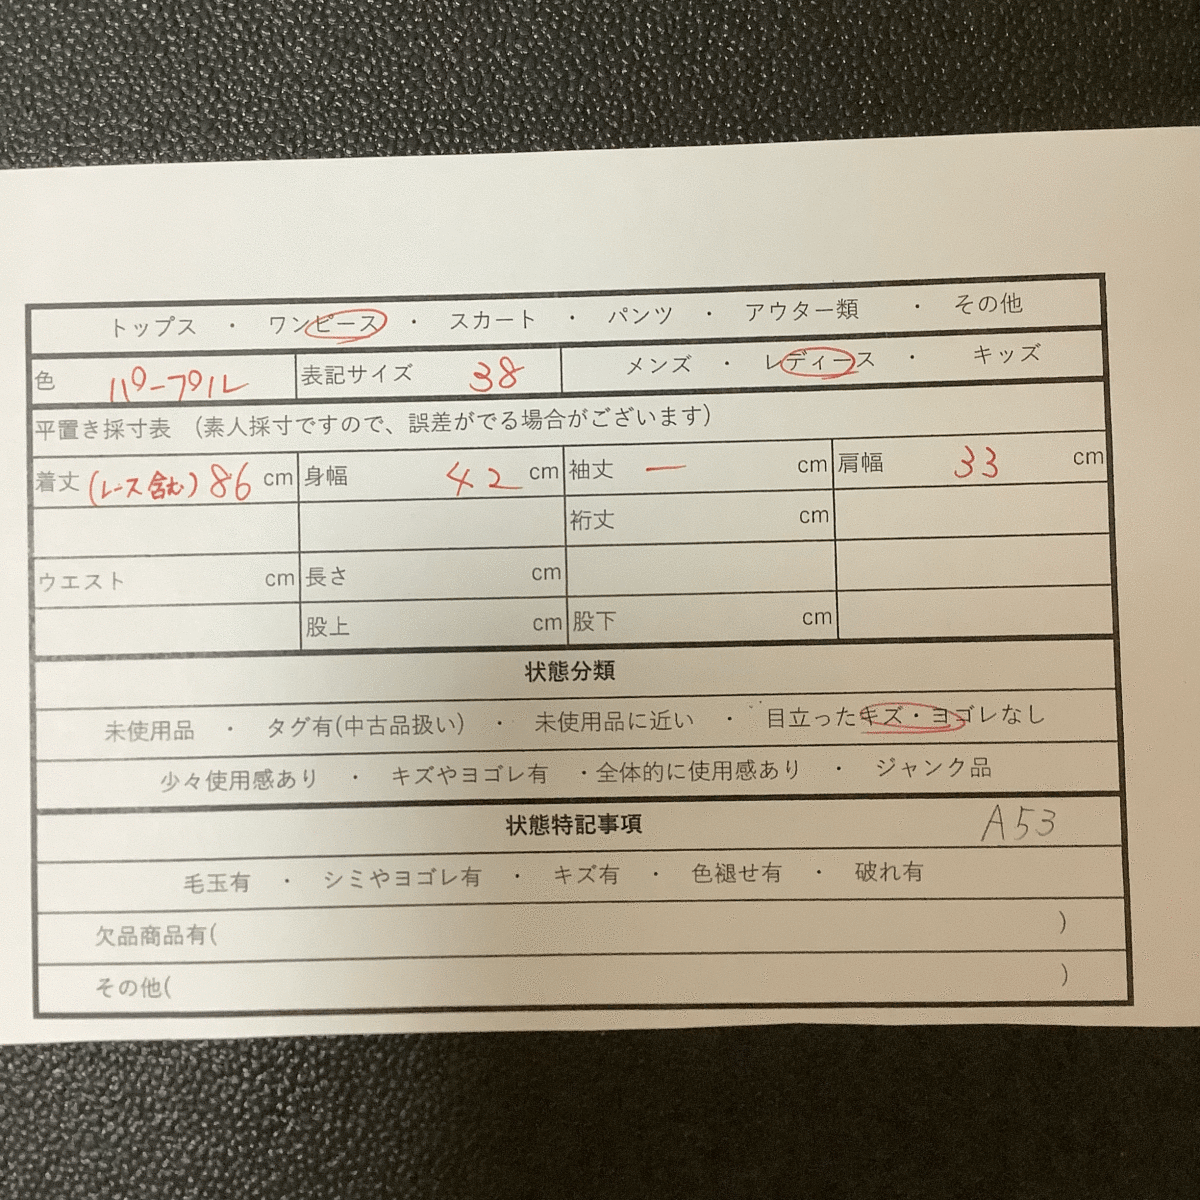 トップス ・ ワンピース ・ スカート ・ パンツ ・ アウター類 ・ その他
色 パープル 表記サイズ 38 メンズ ・ レディース ・ キッズ
平置き採寸表 (素人採寸ですので、誤差がでる場合がございます)
着丈 (レース含む) 86 cm 身幅 42 cm 袖丈 ー cm 肩幅 33 cm
裄丈 cm
ウエスト cm 長さ cm
股上 cm 股下 cm
状態分類
未使用品 ・ タグ有(中古品扱い) ・ 未使用品に近い ・ 目立ったキズ・ヨゴレなし
少々使用感あり ・ キズやヨゴレ有 ・全体的に使用感あり ・ ジャンク品
状態特記事項 A53
毛玉有 ・ シミやヨゴレ有 ・ キズ有 ・ 色褪せ有 ・ 破れ有
欠品商品有( )
その他( )